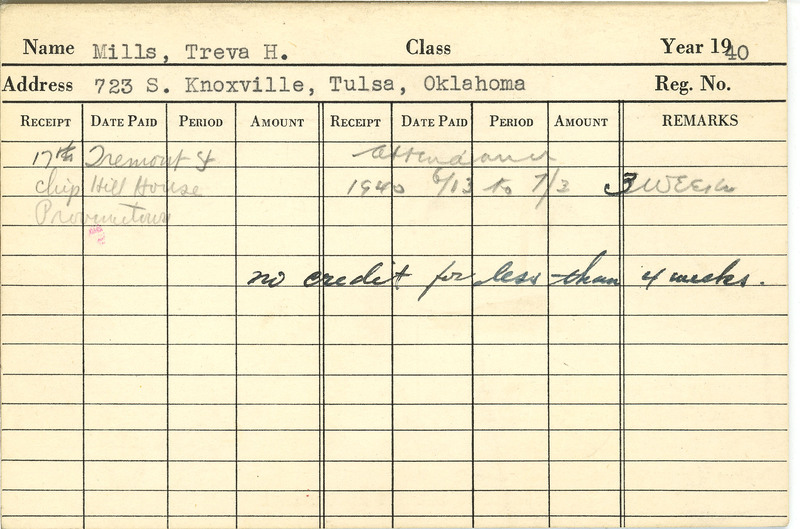 Name Mills, Treva H. Class Year 1940
Address 723 S. Knoxville, Tulsa, Oklahoma Reg. No.
RECEIPT DATE PAID PERIOD AMOUNT RECEIPT DATE PAID PERIOD AMOUNT REMARKS
17th Tremont St attendance
Chip Hill House 1940 6/13 to 7/3 3 WEEKS
Provincetown
no credit for less than 4 weeks.